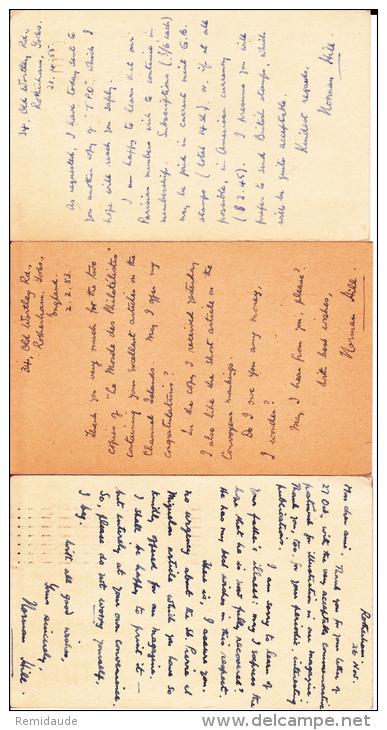 34, Old Wortley Rd.,
Rotherham, Yorks.
21.4.55.
As requested, I have today sent to
you another copy of "T.P.O." which I
hope will reach you safely.
I am happy to learn that our
Parisian members wish to continue in
membership. Subscriptions (7/6 each)
may be paid in current mint G.B.
stamps (total), or, if at all
possible, in American currency
($2.45). I presume you will
prefer to send British stamps, which
will be quite acceptable.
Kindest regards,
Norman Hill
34, Old Wortley Rd.,
Rotherham, Yorks.,
England.
2.2.53.
Thank you very much for the two
copies of "Le Monde des Philatélistes"
containing your excellent articles on the
Channel Islands. May I offer my
congratulations?
In the copy I received yesterday
I also like the short article on the
Convoyeur markings.
Do I owe you any money,
I wonder?
May I hear from you, please?
With best wishes,
Norman Hill.
Rotherham
26 Nov.
Mon cher ami, Thank you for your letter of
27 Oct. with the very acceptable Communication
postmark for illustration in our magazine:
Thank you, too, for your periodic, interesting
publications.
I am sorry to learn of
your father's illness: may I express the
hope that he is now fully recovered?
He has my best wishes in this respect.
There is, I assure you,
no urgency about the St Pierre et
Miquelon article which you have so
kindly offered for our magazine.
I shall be happy to print it —
but entirely at your own convenience.
So, please do not worry yourself,
I beg.
With all good wishes,
Yours sincerely
Norman Hill.
Remidaude
www.delcampe.net